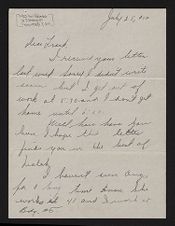 July 25,
Dear Frank,
I received your letter
last week. Sorry I didn't write
sooner but I get out of
work at 5:30 and I don't get
home until 6:00.
Well how have you
been I hope this letter
finds you in the best of
health.
I haven't seen
for a long time Since She
works at 40 and I work at
Bldg. #5.